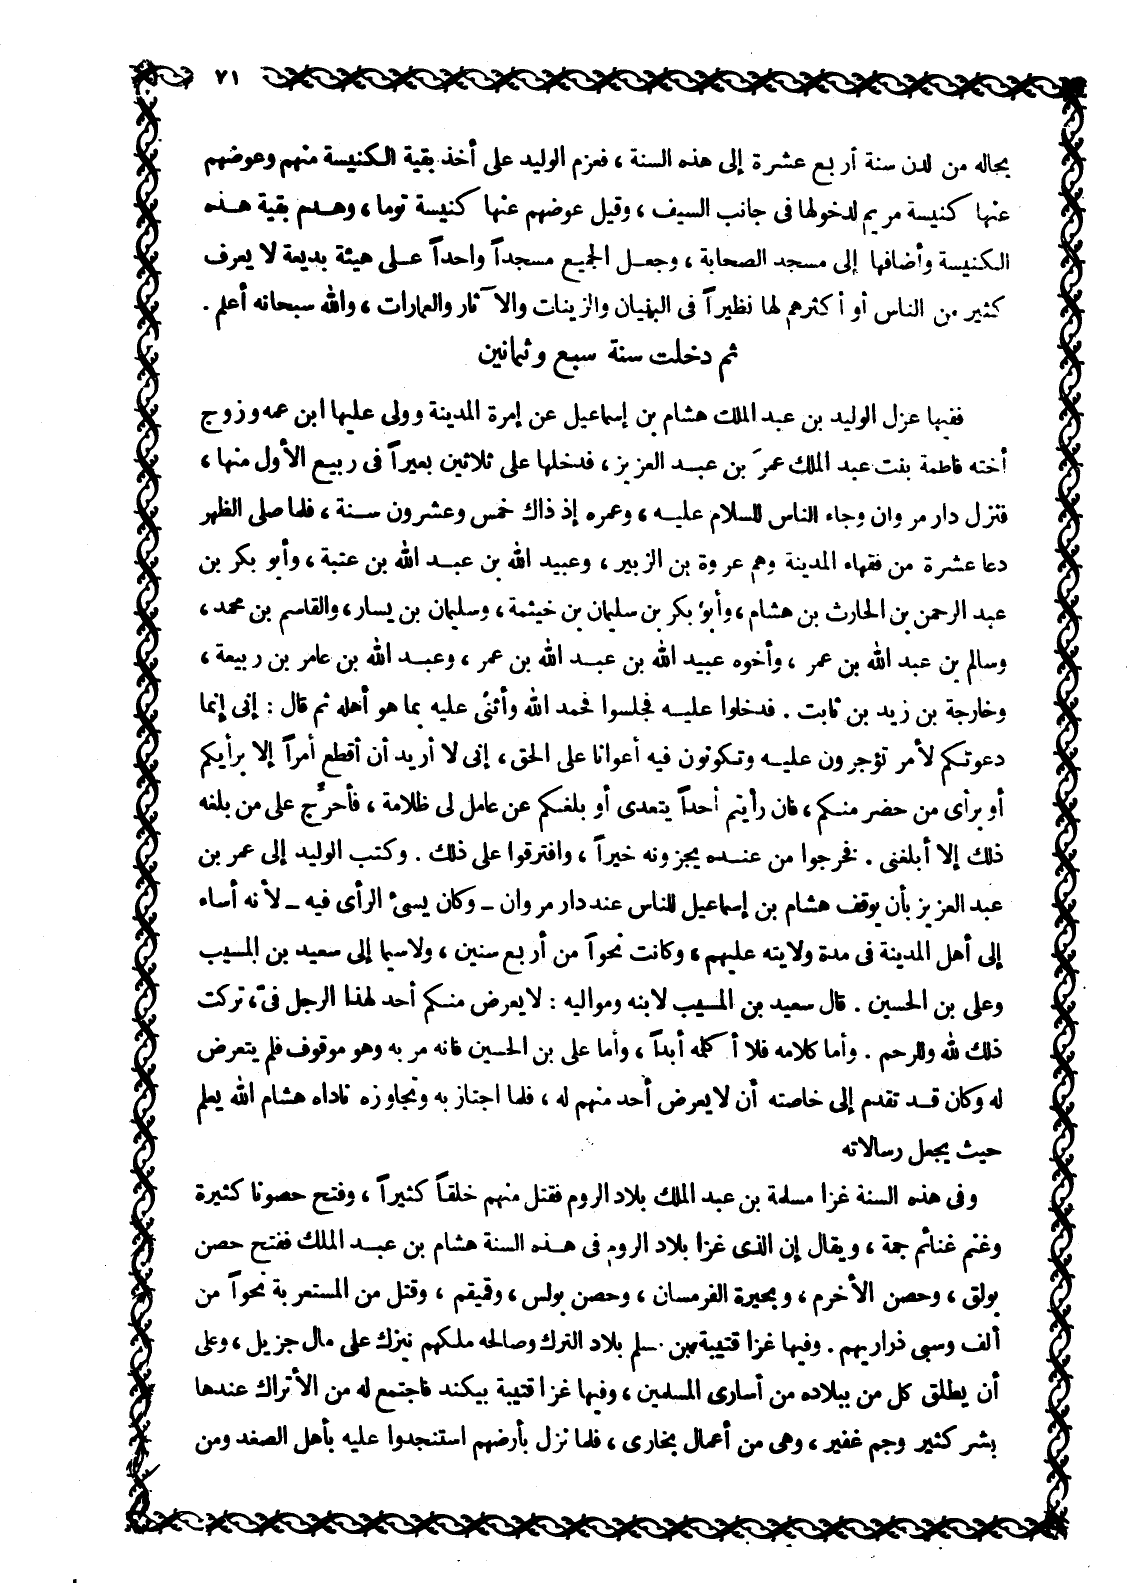 ٧١
بحاله من لدن سنة أربع عشرة إلى هذه السنة ، فعزم الوليد على أخذ بقية الكنيسة منهم وعوضهم
عنها كنيسة مريم لدخولها فى جانب السيف ، وقيل عوضهم عنها كنيسة توما ، وهدم بقية هذه
الكنيسة وأضافها إلى مسجد الصحابة ، وجعل الجميع مسجداً واحداً على هيئة بديعة لا يعرف
كثير من الناس أو أكثرهم لها نظيراً فى البنيان والزينات والآثار والعمارات ، والله سبحانه أعلم .
ثم دخلت سنة سبع وثمانين
ففيها عزل الوليد بن عبد الملك هشام بن إسماعيل عن إمرة المدينة وولى عليها ابن عمه وزوج
أخته فاطمة بنت عبد الملك عمرَ بن عبد العزيز ، فدخلها على ثلاثين بعيراً فى ربيع الأول منها ،
فنزل دار مروان وجاء الناس للسلام عليه ، وعمره إذ ذاك خمس وعشرون سنة ، فلما صلى الظهر
دعا عشرة من فقهاء المدينة وهم عروة بن الزبير ، وعبيد الله بن عبد الله بن عتبة ، وأبو بكر بن
عبد الرحمن بن الحارث بن هشام ، وأبو بكر بن سليمان بن خيثمة ، وسليمان بن يسار ، والقاسم بن محمد ،
وسالم بن عبد الله بن عمر ، وأخوه عبيد الله بن عبد الله بن عمر ، وعبد الله بن عامر بن ربيعة ،
وخارجة بن زيد بن ثابت . فدخلوا عليه فجلسوا فحمد الله وأثنى عليه بما هو أهله ثم قال : إنى إنما
دعوتكم لأمر تؤجرون عليه وتكونون فيه أعوانا على الحق ، إنى لا أريد أن أقطع أمراً إلا برأيكم
أو برأى من حضر منكم ، فان رأيتم أحداً يتعدى أو بلغكم عن عامل لى ظلامة ، فأحرّج على من بلغه
ذلك إلا أبلغنى . فخرجوا من عنده يجزونه خيراً ، وافترقوا على ذلك . وكتب الوليد إلى عمر بن
عبد العزيز بأن يوقف هشام بن إسماعيل للناس عند دار مروان ـ وكان يسىٔ الرأى فيه ـ لأنه أساء
إلى أهل المدينة فى مدة ولايته عليهم ، وكانت نحواً من أربع سنين ، ولاسيما إلى سعيد بن المسيب
وعلى بن الحسين . قال سعيد بن المسيب لابنه ومواليه : لا يعرض منكم أحد لهذا الرجل فىّ ، تركت
ذلك لله وللرحم . وأما كلامه فلا أكلمه أبداً ، وأما على بن الحسين فانه مر به وهو موقوف فلم يتعرض
له وكان قد تقدم إلى خاصته أن لا يعرض أحد منهم له ، فلما اجتاز به وتجاوزه ناداه هشام الله يعلم
حيث يجعل رسالاته
وفى هذه السنة غزا مسلمة بن عبد الملك بلاد الروم فقتل منهم خلقاً كثيراً ، وفتح حصونا كثيرة
وغنم غنائم جمة ، ويقال إن الذى غزا بلاد الروم فى هذه السنة هشام بن عبد الملك ففتح حصن
بولق ، وحصن الأخرم ، وبحيرة الفرمسان ، وحصن بولس ، وقميقم ، وقتل من المستعربة نحواً من
ألف وسبى ذراريهم . وفيها غزا قتيبة بن مسلم بلاد الترك وصالحه ملكهم نيزك على مال جزيل ، وعلى
أن يطلق كل من ببلاده من أسارى المسلمين ، وفيها غزا قتيبة بيكند فاجتمع له من الأتراك عندها
بشر كثير وجم غفير ، وهى من أعمال بخارى ، فلما نزل بأرضهم استنجدوا عليه بأهل الصغد ومن